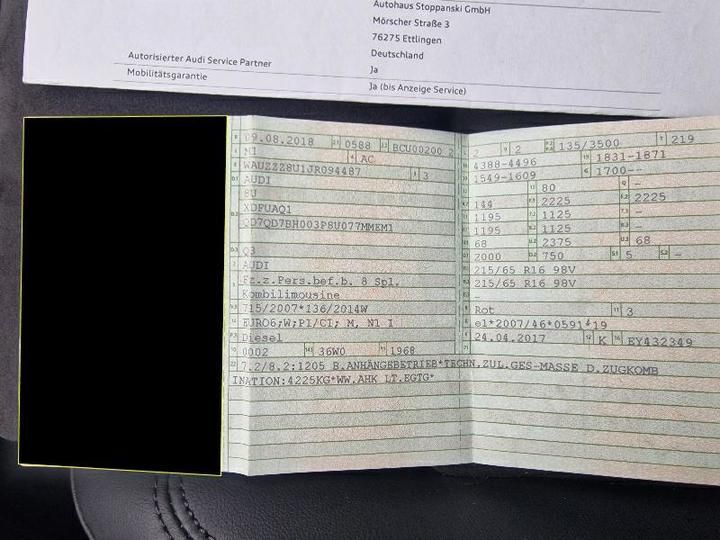 Autohaus Stoppanski GmbH
Mörscher Straße 3
76275 Ettlingen
Deutschland
Autorisierter Audi Service Partner
Ja
Mobilitätsgarantie
Ja (bis Anzeige Service)
09.08.2018 0588 BCU00200 2
M1 AC
WAUZZZ8U1JR094487 3
AUDI
8U
XDFUAQ1
QD7QD7BH003P8U077MMEM1
Q3
AUDI
Fz.z.Pers.bef.b. 8 Spl.
Kombilimousine
715/2007*136/2014W
EURO6;W;PI/CI; M, N1 I
Diesel
0002 36W0 1968
7.2/8.2:1205 B.ANHÄNGEBETRIEB*TECHN.ZUL.GES-MASSE D.ZUGKOMB
INATION:4225KG*WW.AHK LT.EGTG*
2 2 135/3500 219
4388-4496 1831-1871
1549-1609 1700--
80 –
144 2225 2225
1195 1125 –
1195 1125 –
68 2375 68
2000 750 5 –
215/65 R16 98V
215/65 R16 98V
–
Rot 3
e1*2007/46*0591*19
24.04.2017 K EY432349